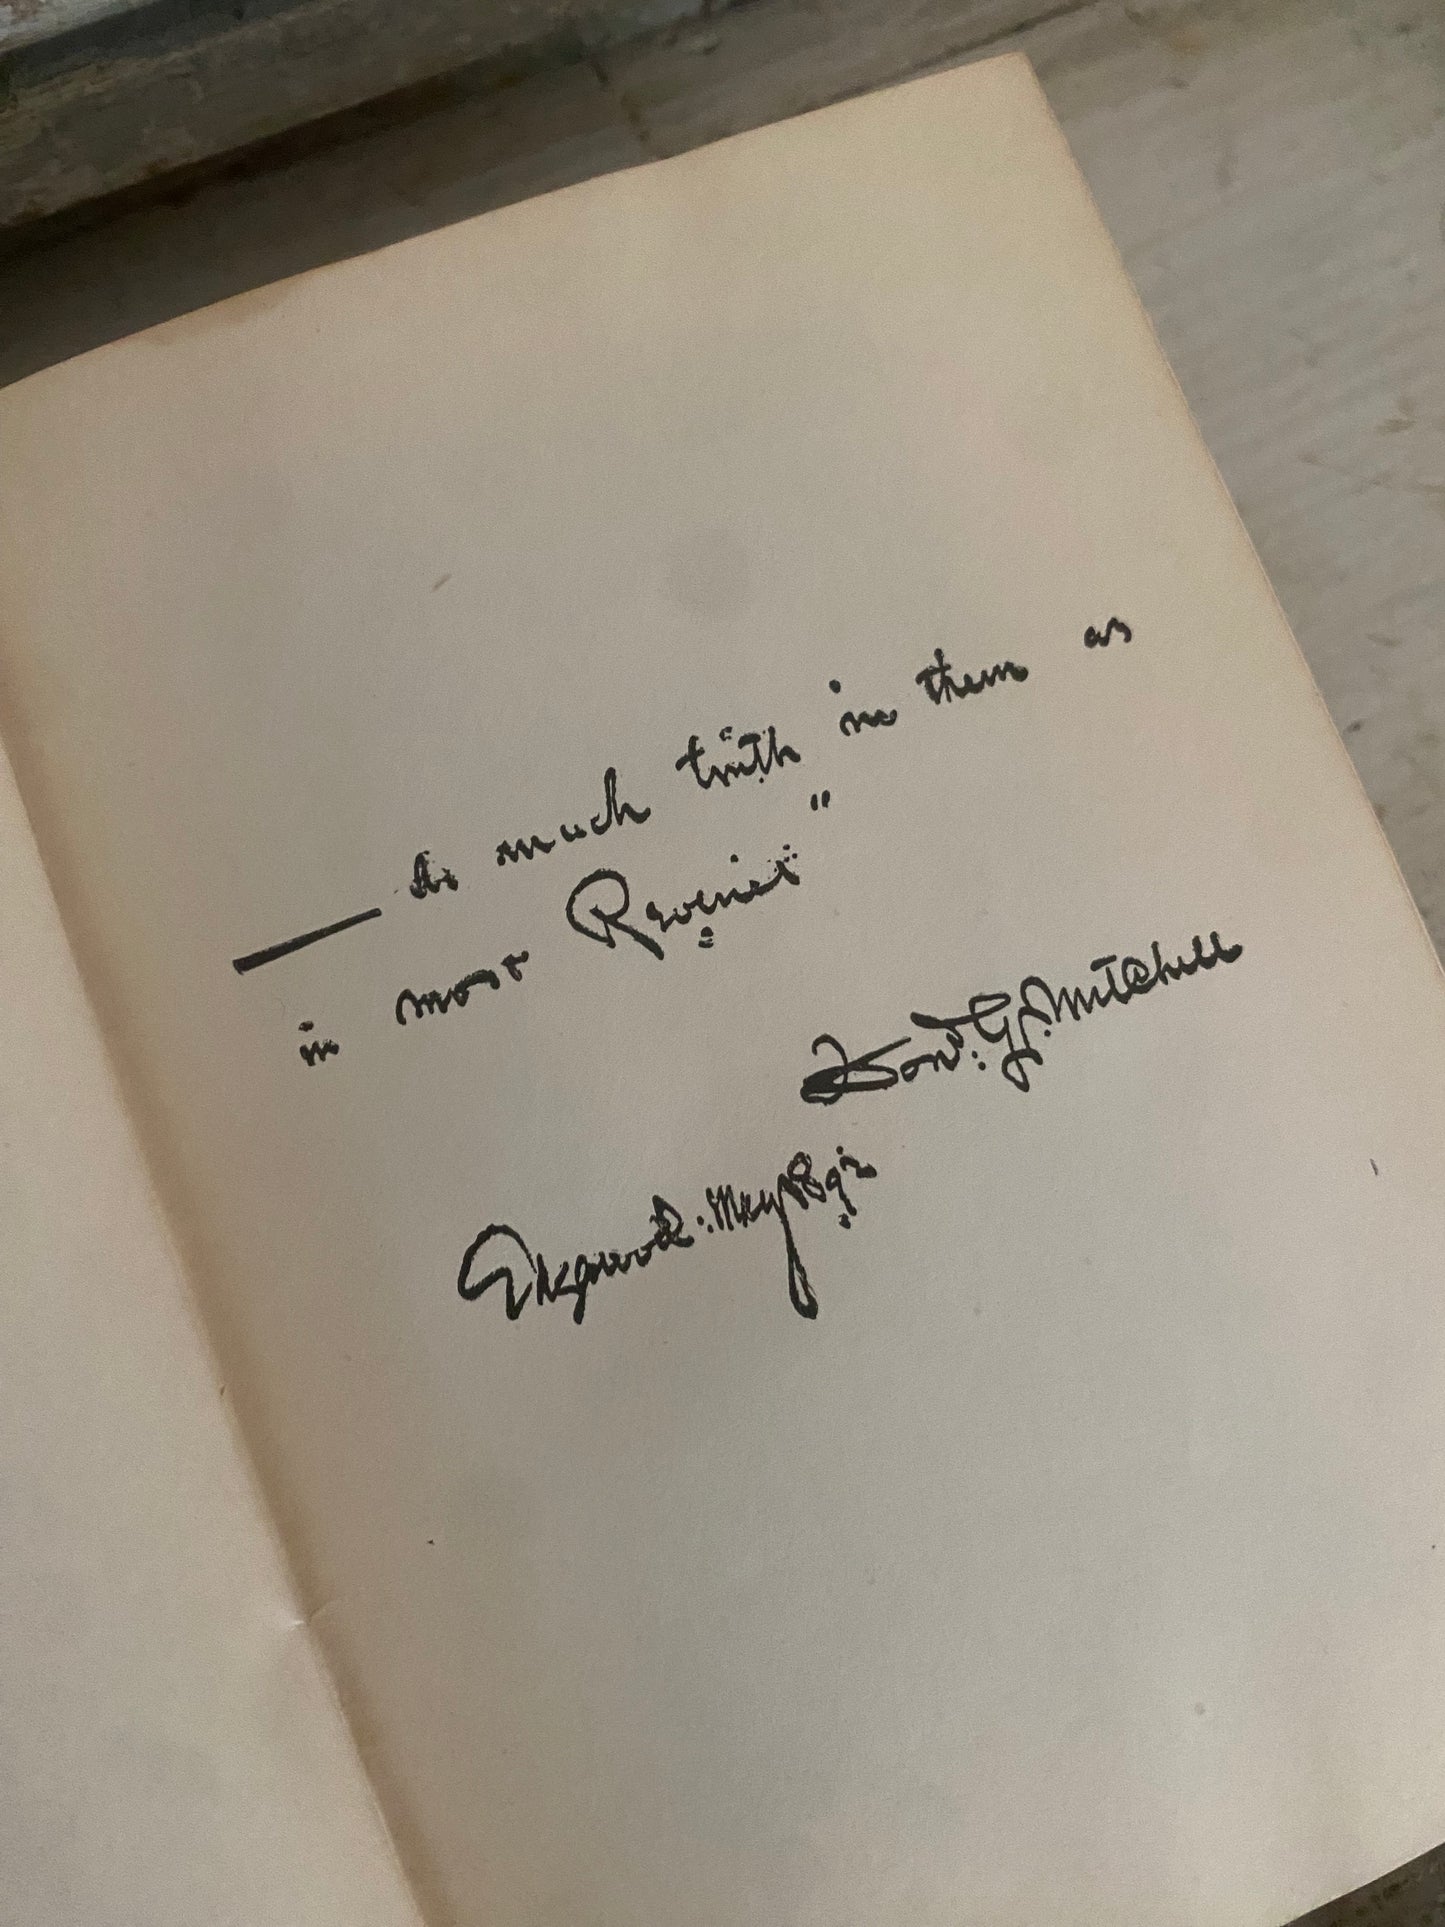 — As much truth in them as
in most Reveries"
Don'd. G. Mitchell
Edgewood: May